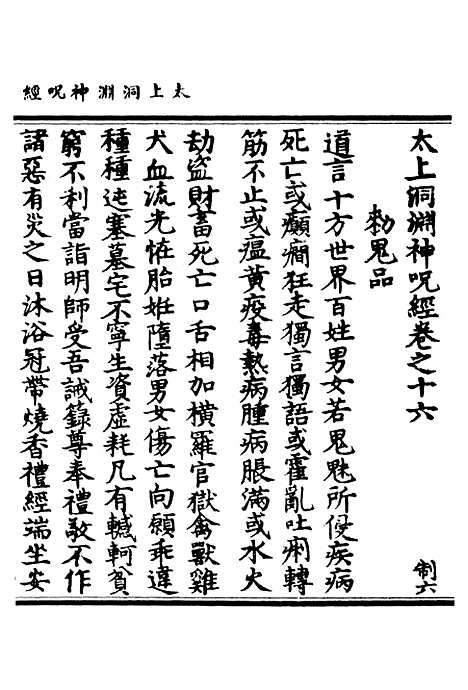 太上洞淵神呪經
太上洞淵神呪經卷之十六 制六
勑鬼品
道言十方世界百姓男女若鬼魅所侵疾病
死亡或癲癎狂走獨言獨語或霍亂吐痢轉
筋不止或瘟黃疫毒熱病腫病脹滿或水火
劫盜財畜死亡口舌相加橫羅官獄禽獸雞
犬血流光怪胎姙墮落男女傷亡向願乖違
種種迍蹇墓宅不寧生資虛耗凡有轗軻貧
窮不利當詣明師受吾誡錄尊奉禮敬不作
諸惡有災之日沐浴冠帶燒香禮經端坐安